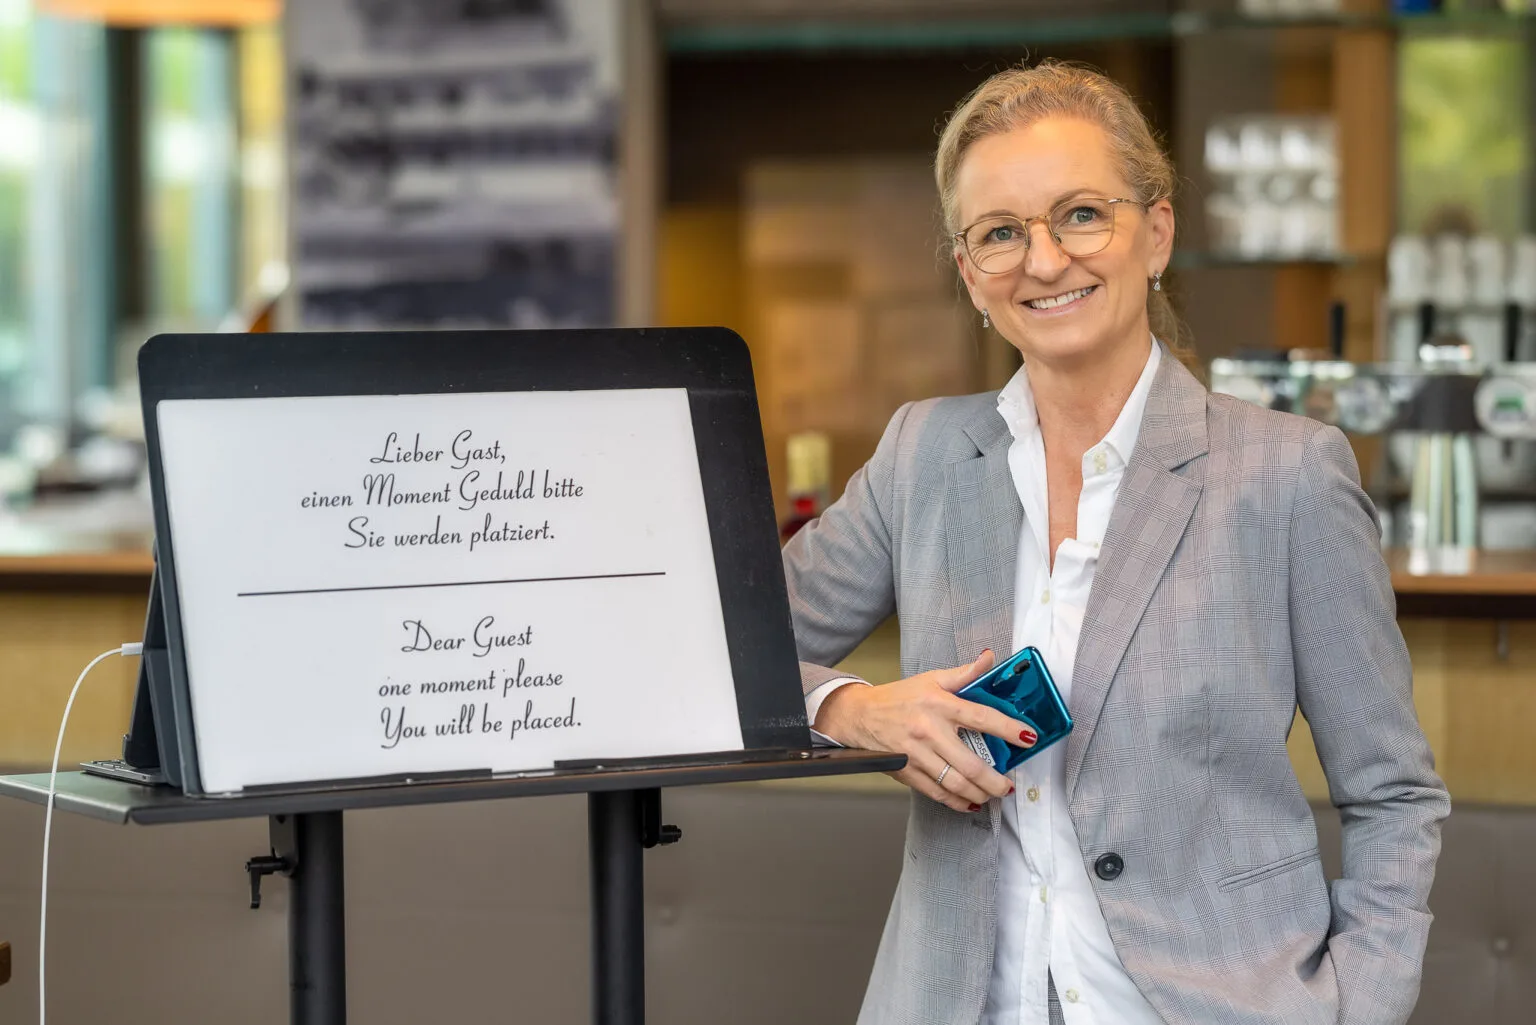 Lieber Gast,
einen Moment Geduld bitte
Sie werden platziert.
Dear Guest
one moment please
You will be placed.